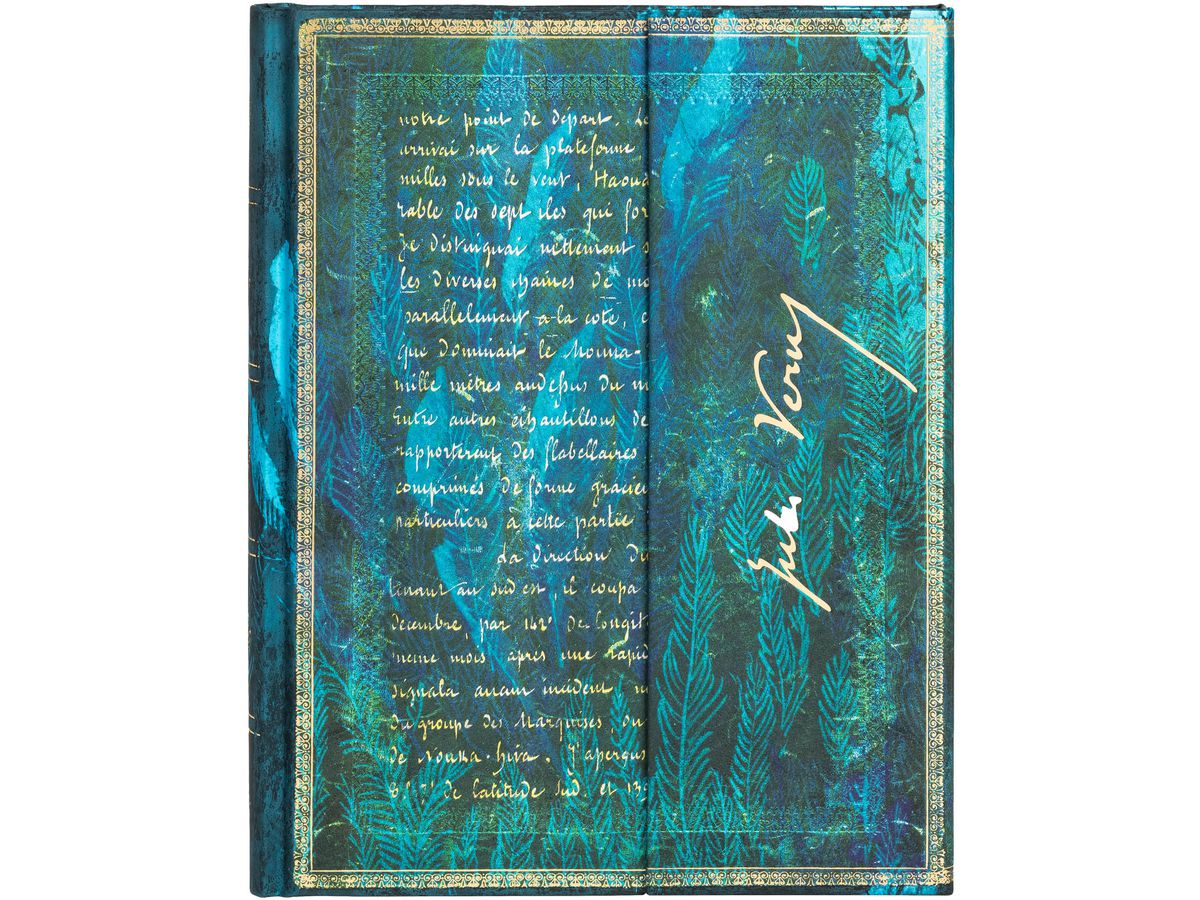 notre point de départ. Le
arrivai sur la plateforme
milles sous le vent, Haoua
rable des sept iles qui for
Je distinguai nettement
les diverses chaines de mo
parallelement a la cote, c
que dominait le Mouna-
mille mètres audessus du m
Entre autres échautillons de
rapporterent des flabellaires
comprimés de forme gracieu
particuliers à cette partie
La direction Du
tenant au sud est, il coupa
décembre, par 142° de longit
meme mois après une rapid
signala aucun incident,
du groupe des Marquises, ou
de Nouka-hiva. J'aperçus
8° 7' de latitude sud. et 139
Jules Verne